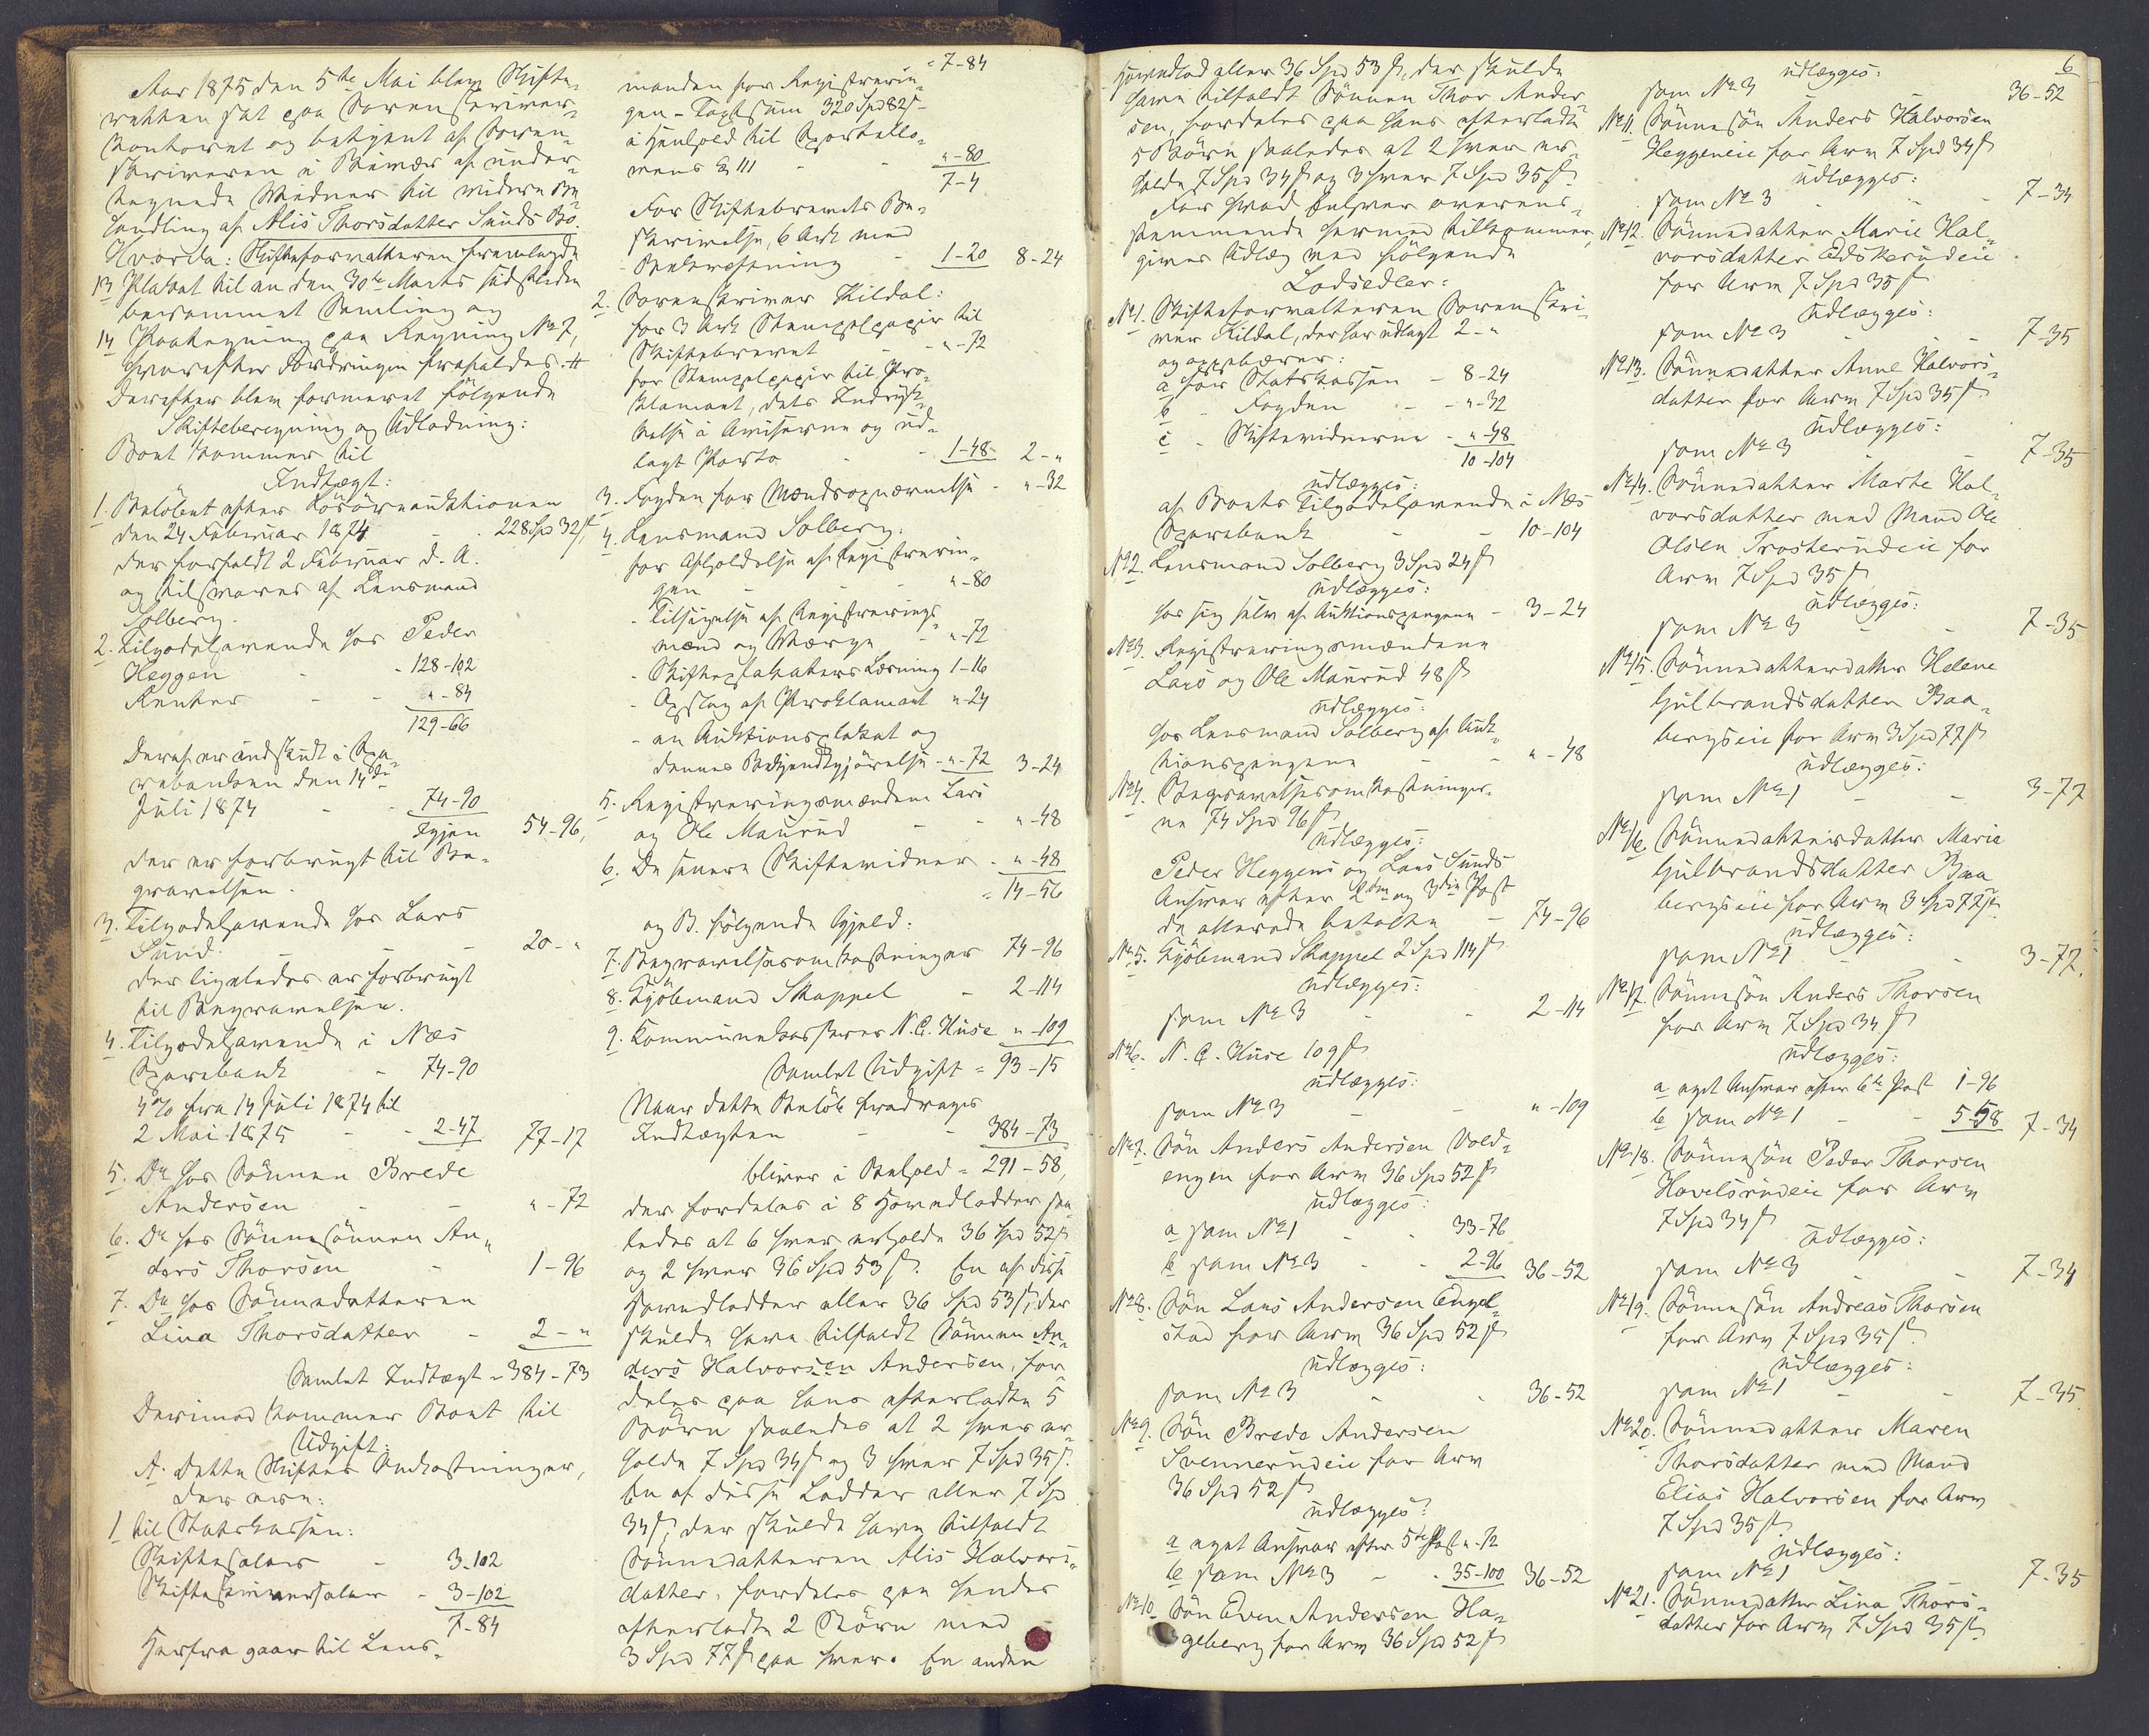 Aar 1875 den 5te Mai blev Skifte-
retten sat paa Sorenskriver-
kontoret og betjent af Soren-
skriveren i Nærvær af under-
tegnede Vidner til videre Be-
handling af Alis Thorsdatter Sunds Bo.
Hvorda: Skifteforvalteren fremlagde
13 Plakat til en den 30te Marts sidstleden
berammet Samling og
14 Paategning paa Regning No 7,
hvorefter Fordringen frafaldes. #
Derefter blev formeret følgende
Skifteberegning og Udlodning:
Boet kommer til
Indtægt:
1. Beløbet efter Løsøreauktionen
den 24 Februar 1874 - - 228 Spd 32 s,
der forfaldt 2 Februar d. A.
og tilsvares af Lensmand
Solberg.
2. Tilgodehavende hos Peder
Heggen - - 128-102
Renter - - " - 84
129-66
Deraf er indskudt i Spa-
rebanken den 14de
Juli 1874 - - 74-90
Igjen 54-96,
der er forbrugt til Be-
gravelsen.
3. Tilgodehavende hos Lars
Sund - - 20 - "
der ligeledes er forbrugt
til Begravelsen.
4. Tilgodehavende i Næs
Sparebank - 74-90
4 % fra 14 Juli 1874 til
2 Mai 1875 - - 2-47 77-17
5. Do hos Sønnen Brede
Andersen - - " - 72
6. Do hos Sønnesønnen An-
ders Thorsen - 1-96
7. Do hos Sønnedatteren
Lina Thorsdatter - 2 - "
Samlet Indtægt = 384-73
Derimod kommer Boet til
Udgift:
A. dette Skiftes Omkostninger,
der ere:
1 til Statskassen:
Skiftesalær - 3-102
Skifteskriversalær - 3-102
7-84
Herfra gaar til Lens-
= 7-84
manden for Registrerin-
gen - Taxtsum 320 Spd 82 s -
i Henhold til Sportello-
vens § 111 - - " - 80
7-4
For Skiftebrevets Be-
skrivelse, 6 Ark med
Bekræftning - 1-20 8-24
2. Sorenskriver Kildal:
for 3 Ark Stempelpapir til
Skiftebrevet - " - 72
for Stempelpapir til Pro-
klamaet, dets Indryk-
kelse i Aviserne og ud-
lagt Porto - - 1-48 2 - "
3. Fogden for Mandsopnævnelse - " - 32
4. Lensmand Solberg:
for Afholdelse af Registrerin-
gen - - " - 80
- Tilsigelse af Registrerings-
mænd og Værge - " - 72
- Skifteplakaters Læsning 1-16
- Opslag af Proklamaet " - 24
- en Auktionsplakat og
dennes Bekjendtgjørelse - " - 72 3-24
5. Registreringsmændene Lars
og Ole Maurud - - " - 48
6. De senere Skiftevidner - " - 48
= 14-56
og B. følgende Gjeld:
7. Begravelsesomkostninger 74-96
8. Kjøbmand Skappel - 2-114
9. Kommunekasserer N. C. Huse " - 109
Samlet Udgift = 93-15
Naar dette Beløb fradrages
Indtægten - - 384-73
bliver i Behold = 291-58,
der fordeles i 8 Hovedlodder saa-
ledes at 6 hver erholde 36 Spd 52 s
og 2 hver 36 Spd 53 s. En af disse
Hovedlodder eller 36 Spd 53 s, der
skulde have tilfaldt Sønnen An-
ders Halvorsen Andersen, for-
deles paa hans efterladte 5
Børn saaledes at 2 hver er-
holde 7 Spd 34 s og 3 hver 7 Spd 35 s.
En af disse Lodder eller 7 Spd
34 s, der skulde have tilfaldt
Sønnedatteren Alis Halvors-
datter, fordeles paa hendes
efterladte 2 Børn med
3 Spd 77 s paa hver. En anden
Hovedlod eller 36 Spd 53 s, der skulde
have tilfaldt Sønnen Thor Ander-
sen, fordeles paa hans efterladte
5 Børn saaledes at 2 hver er-
holde 7 Spd 34 s og 3 hver 7 Spd 35 s.
For hvad Enhver overens-
stemmende hermed tilkommer,
gives Udlæg ved følgende
Lodsedler:
No 1. Skifteforvalteren Sorenskri-
ver Kildal, der har udlagt 2 - "
og oppebærer:
a for Statskassen - 8-24
b - Fogden - - " - 32
c - Skiftevidnerne - " - 48
10-104
udlægges:
af Boets Tilgodehavende i Næs
Sparebank - - 10-104
No 2. Lensmand Solberg 3 Spd 24 s
udlægges:
hos sig selv af Auktionspengene - 3-24
No 3. Registreringsmændene
Lars og Ole Maurud 48 s
udlægges:
hos Lensmand Solberg af Auk-
tionspengene - - " - 48
No 4. Begravelsesomkostninger-
ne 74 Spd 96 s
udlægges:
Peder Heggens og Lars Sunds
Ansvar efter 2den og 3die Post
de allerede betalte - 74-96
No 5. Kjøbmand Skappel 2 Spd 114 s
udlægges:
som No 3 - - 2-114
No 6. N. C. Huse 109 s
udlægges:
som No 3 - - " - 109
No 7. Søn Anders Andersen Vold-
engen for Arv 36 Spd 52 s
udlægges:
a som No 1 - - 33-76
b som No 3 - - 2-96 36-52
No 8. Søn Lars Andersen Engel-
stad for Arv 36 Spd 52 s
udlægges:
som No 3 - - 36-52
No 9. Søn Brede Andersen
Svennerudeie for Arv
36 Spd 52 s
udlægges:
a eget Ansvar efter 5te Post " - 72
b som No 3 - - 35-100 36-52
No 10. Søn Even Andersen Ha-
geberg for Arv 36 Spd 52 s
6
udlægges:
som No 3 36-52
No 11. Sønnesøn Anders Halvorsen
Heggeneie for Arv 7 Spd 34 s
udlægges:
som No 3 - - 7-34
No 12. Sønnedatter Marie Hal-
vorsdatter Edskerudeie
for Arv 7 Spd 35 s
udlægges:
som No 3 - - 7-35
No 13. Sønnedatter Anne Halvors-
datter for Arv 7 Spd 35 s
udlægges:
som No 3 - - 7-35
No 14. Sønnedatter Marte Hal-
vorsdatter med Mand Ole
Olsen Trosterudeie for
Arv 7 Spd 35 s
udlægges:
som No 3 - - 7-35
No 15. Sønnedatterdatter Helene
Gulbrandsdatter Baa-
bergseie for Arv 3 Spd 77 s
udlægges:
som No 1 - - 3-77
No 16. Sønnedatterdatter Marie
Gulbrandsdatter Baa
bergseie for Arv 3 Spd 77 s
udlægges:
som No 1 - - 3-77.
No 17. Sønnesøn Anders Thorsen
for Arv 7 Spd 34 s
udlægges:
a eget Ansvar efter 6te Post 1-96
b som No 1 - - 5-58 7-34
No 18. Sønnesøn Peder Thorsen
Hovelsrudeie for Arv
7 Spd 34 s
udlægges:
som No 3 - - 7-34
No 19. Sønnesøn Andreas Thorsen
for Arv 7 Spd 35 s
udlægges:
som No 1 - - 7-35.
No 20. Sønnedatter Maren
Thorsdatter med Mand
Elias Halvorsen for Arv
7 Spd 35 s
udlægges:
som No 1 7-35
No 21. Sønnedatter Lina Thors-
datter for Arv 7 Spd 35 s